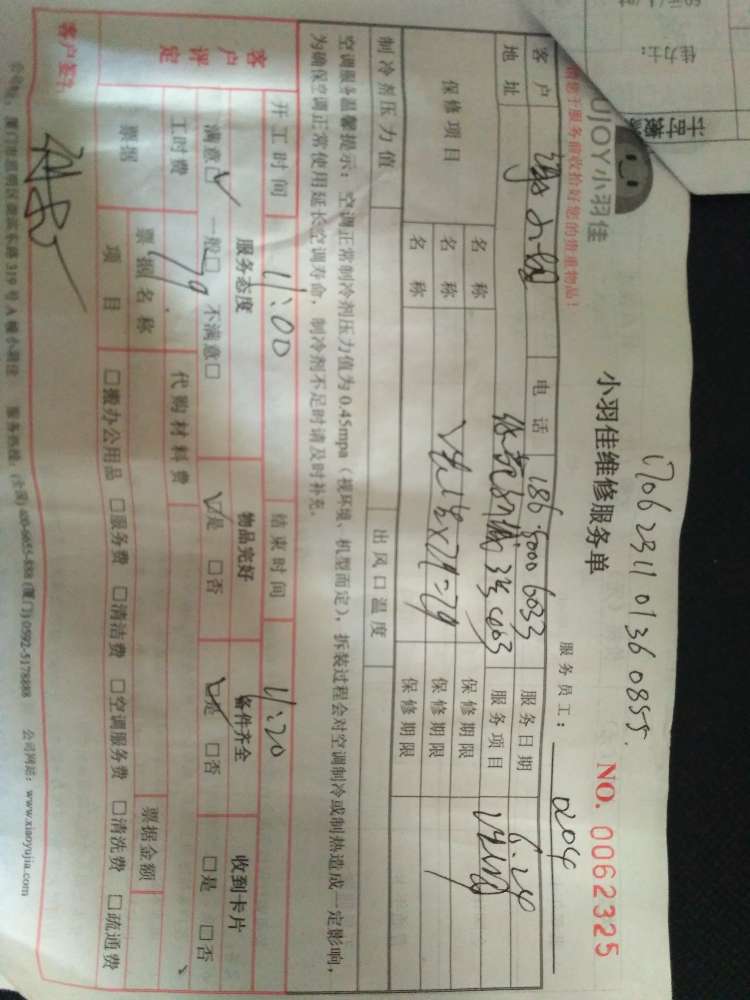 UJOY小羽佳
请您于服务前收拾好您的贵重物品!
1706231101360855.
小羽佳维修服务单
NO. 0062325
服务员工: 0204
客户 电话 186 5000 6033 服务日期 6.24
地址 3号 服务项目
保修项目 名称 保修期限
名称 保修期限
名称 保修期限
制冷剂压力值 出风口温度
空调服务温馨提示: 空调正常制冷剂压力值为0.45mpa(视环境、机型而定),拆装过程会对空调制冷或制热造成一定影响,
为确保空调正常使用延长空调寿命,制冷剂不足时请及时补充.
开工时间 11:00 结束时间 11:20
客户评定
服务态度 物品完好 备件齐全 收到卡片
满意□ 一般□ 不满意□ □是 □否 □是 □否 □是 □否
工时费 代购材料费
票据 票据名称 票据金额
项目 □搬办公用品 □服务费 □清洁费 □空调服务费 □清洗费 □疏通费
客户签字:
319号A幢小羽佳 服务热线: (全国) 400-6655-888 (厦门) 0592-5178888 公司网站: www.xiaoyujia.com
许可搬